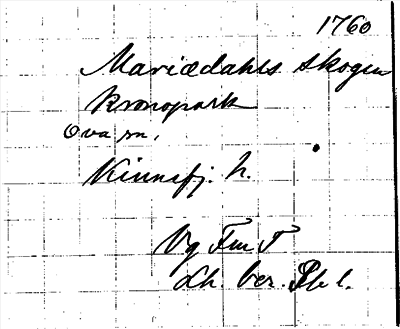 1760
Mariædahls skogen
kronopark
Ova sn,
Kinnefj. h.
Vg Fm F
Lh ber. Pl 1.